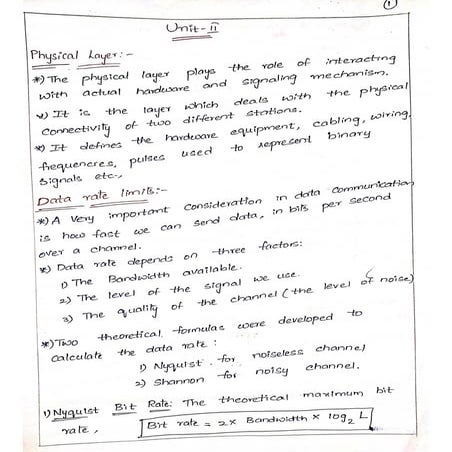 1
Unit-II
Physical Layer:-
*) The physical layer plays the role of interacting
with actual hardware and signaling mechanism.
*) It is the layer which deals with the physical
connectivity of two different stations.
*) It defines the hardware equipment, cabling, wiring,
frequences, pulses used to represent binary
signals etc.,
Data rate limits:-
*) A Very important consideration in data communication
is how fast we can send data, in bits per second
over a channel.
*) Data rate depends on three factors:
1) The Bandwidth available.
2) The level of the signal we use.
3) The quality of the channel (the level of noise)
*) Two theoretical formulas were developed to
Calculate the data rate:
1) Nyquist for noiseless channel
2) Shannon for noisy channel.
1) Nyquist Bit Rate: The theoretical maximum bit
rate, Bit rate = 2x Bandwidth x log₂ L